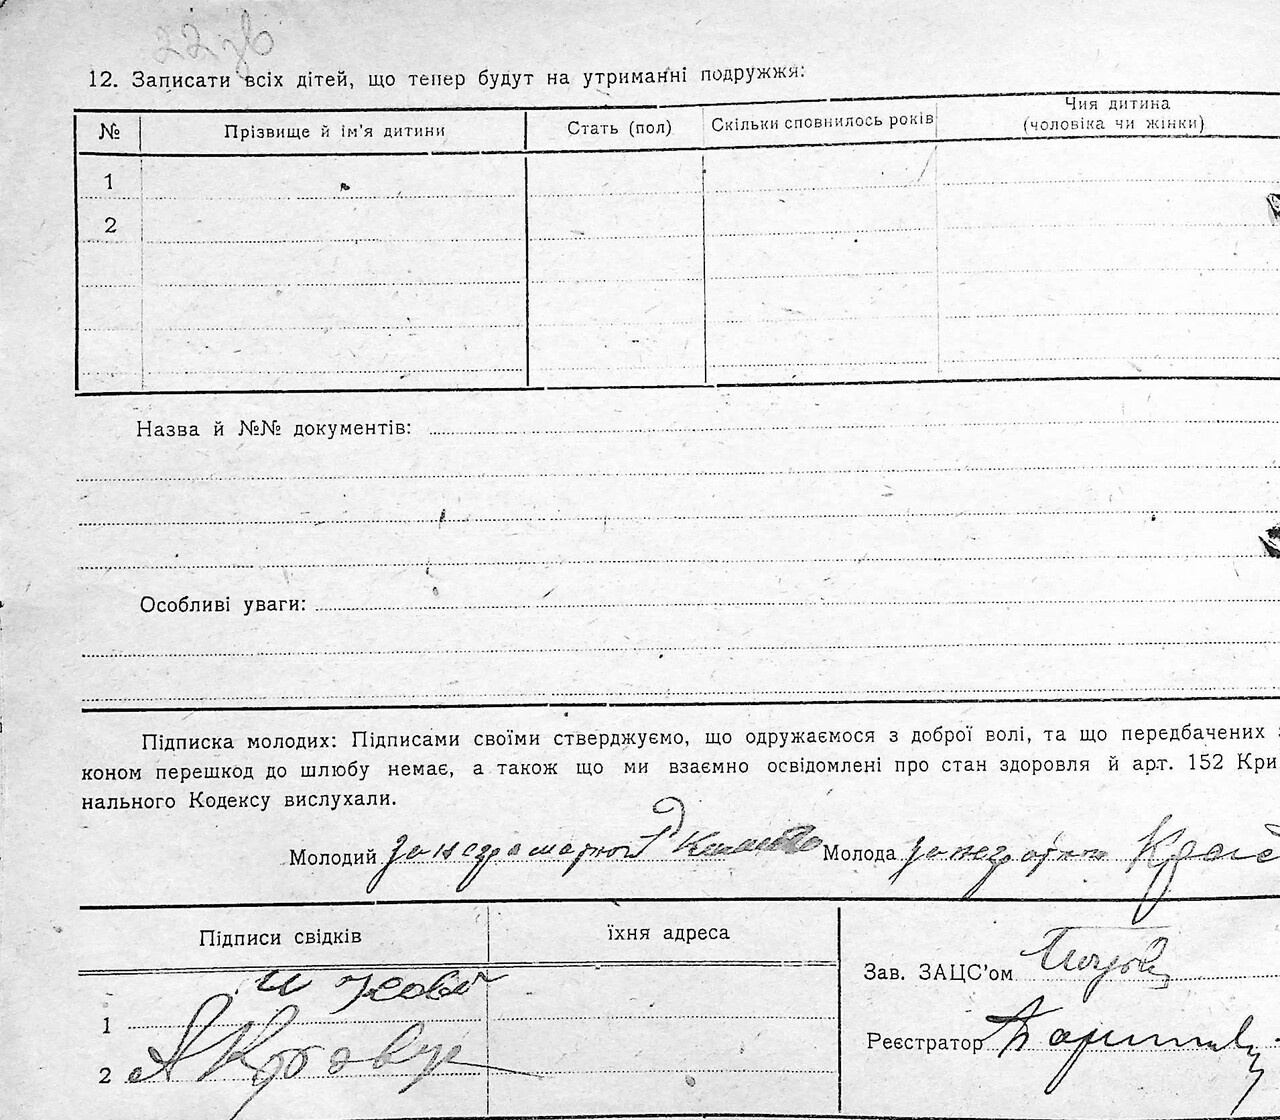 22 зв
12. Записати всіх дітей, що тепер будут на утриманні подружжя:
№ Прізвище й ім'я дитини Стать (пол) Скільки сповнилось років Чия дитина (чоловіка чи жінки)
1
2
Назва й №№ документів:
Особливі уваги:
Підписка молодих: Підписами своїми стверджуємо, що одружаємося з доброї волі, та що передбачених з
коном перешкод до шлюбу немає, а також що ми взаємно освідомлені про стан здоровля й арт. 152 Кри
нального Кодексу вислухали.
Молодий за неграмотного Молода
Підписи свідків їхня адреса
Зав. ЗАЦС'ом
1
Реєстратор
2